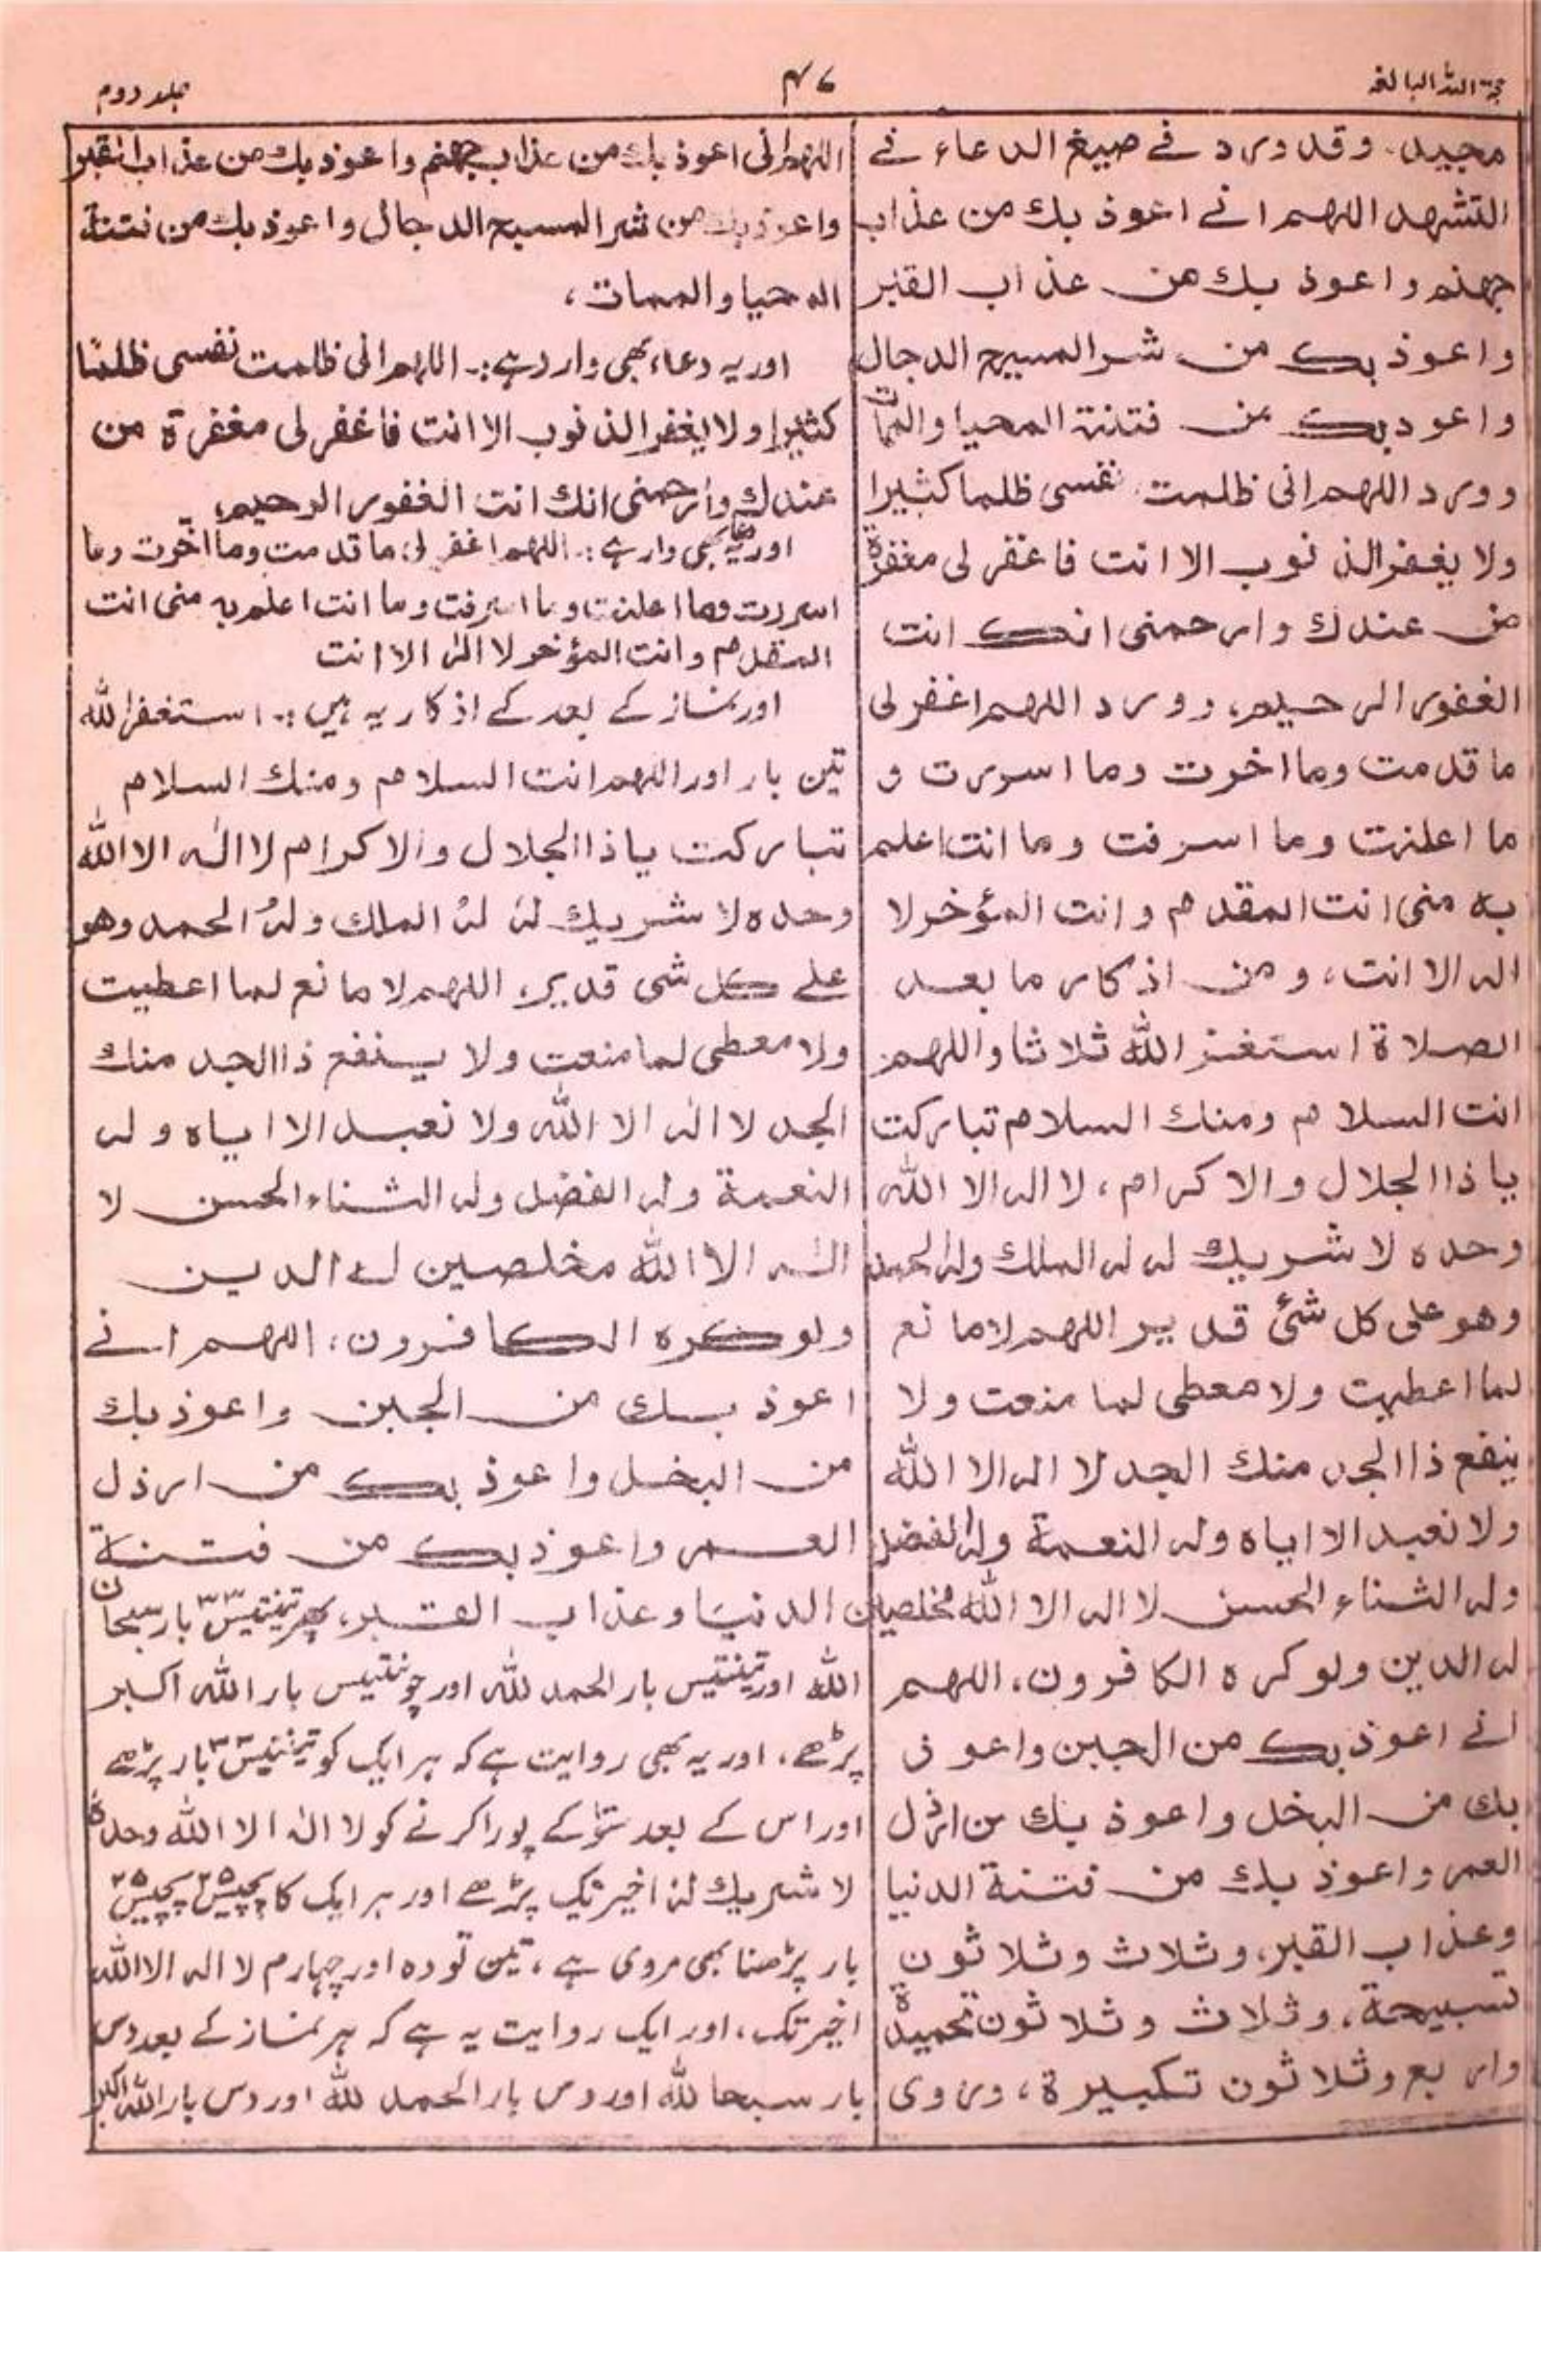 حجۃ اللہ البالغہ
۴۷
جلد دوم
مجيد. وقد ورد في صيغ الدعاء في
التشهد اللهم اني اعوذ بك من عذاب
جهنم واعوذ بك من عذاب القبر
واعوذ بك من شر المسيح الدجال
واعوذ بك من فتنة المحيا والممات
وورد اللهم انى ظلمت نفسى ظلما كثيرا
ولا يغفر الذنوب الا انت فاغفر لى مغفرة
من عندك وارحمنى انك انت
الغفور الرحيم، وورد اللهم اغفر لى
ما قدمت وما اخرت وما اسررت و
ما اعلنت وما اسرفت وما انت اعلم
به منى انت المقدم وانت المؤخر لا
اله الا انت، ومن اذكار ما بعد
الصلاة استغفر الله ثلاثا واللهم
انت السلام ومنك السلام تباركت
يا ذا الجلال والاكرام، لا اله الا الله
وحده لا شريك له له الملك وله الحمد
وهو على كل شئ قدير اللهم لا مانع
لما اعطيت ولا معطى لما منعت ولا
ينفع ذا الجد منك الجد لا اله الا الله
ولا نعبد الا اياه وله النعمة وله الفضل
وله الثناء الحسن لا اله الا الله مخلصين
له الدين ولو كره الكافرون، اللهم
اني اعوذ بك من الجبن واعوذ
بك من البخل واعوذ بك من ارذل
العمر واعوذ بك من فتنة الدنيا
وعذاب القبر، وثلاث وثلاثون
تسبيحة، وثلاث وثلاثون تحميدة
واربع وثلاثون تكبيرة، وروى
اللهم انى اعوذ بك من عذاب جهنم واعوذ بك من عذاب القبر
واعوذ بك من شر المسيح الدجال واعوذ بك من فتنة
المحيا والممات،
اور یہ دعاء بھی وارد ہے:۔ اللهم انى ظلمت نفسى ظلمًا
كثيرا ولا يغفر الذنوب الا انت فاغفر لى مغفرة من
عندك وارحمنى انك انت الغفور الرحيم،
اور یہ دعا بھی وارد ہے:۔ اللهم اغفر لى ما قدمت وما اخرت وما
اسررت وما اعلنت وما اسرفت وما انت اعلم به منى انت
المقدم وانت المؤخر لا الٰه الا انت
اور نماز کے بعد کے اذکار یہ ہیں:۔ استغفر الله
تین بار اور اللهم انت السلام ومنك السلام
تباركت يا ذا الجلال والاكرام لا الٰه الا الله
وحده لا شريك لهٗ لهٗ الملك ولهٗ الحمد وهو
على كل شى قدير، اللهم لا مانع لما اعطيت
ولا معطى لما منعت ولا ينفع ذا الجد منك
الجد لا الٰه الا الله ولا نعبد الا اياه وله
النعمة وله الفضل وله الثناء الحسن لا
الٰه الا الله مخلصين له الدين
ولو كره الكافرون، اللهم اني
اعوذ بك من الجبن واعوذ بك
من البخل واعوذ بك من ارذل
العمر واعوذ بك من فتنة
الدنيا وعذاب القبر، پھر تینتیس۳۳ بار سبحان
الله اور تینتیس بار الحمد لله اور چونتیس بار الله اكبر
پڑھے، اور یہ بھی روایت ہے کہ ہر ایک کو تینتیس۳۳ بار پڑھے
اور اس کے بعد سَو کے پورا کرنے کو لا الٰه الا الله وحدهٗ
لا شريك لهٗ اخیر تک پڑھے اور ہر ایک کا پچیس۲۵ پچیس۲۵
بار پڑھنا بھی مروی ہے، تین تو وہ اور چہارم لا اله الا الله
اخیر تک، اور ایک روایت یہ ہے کہ ہر نماز کے بعد دس
بار سبحان لله اور دس بار الحمد لله اور دس بار الله اكبر